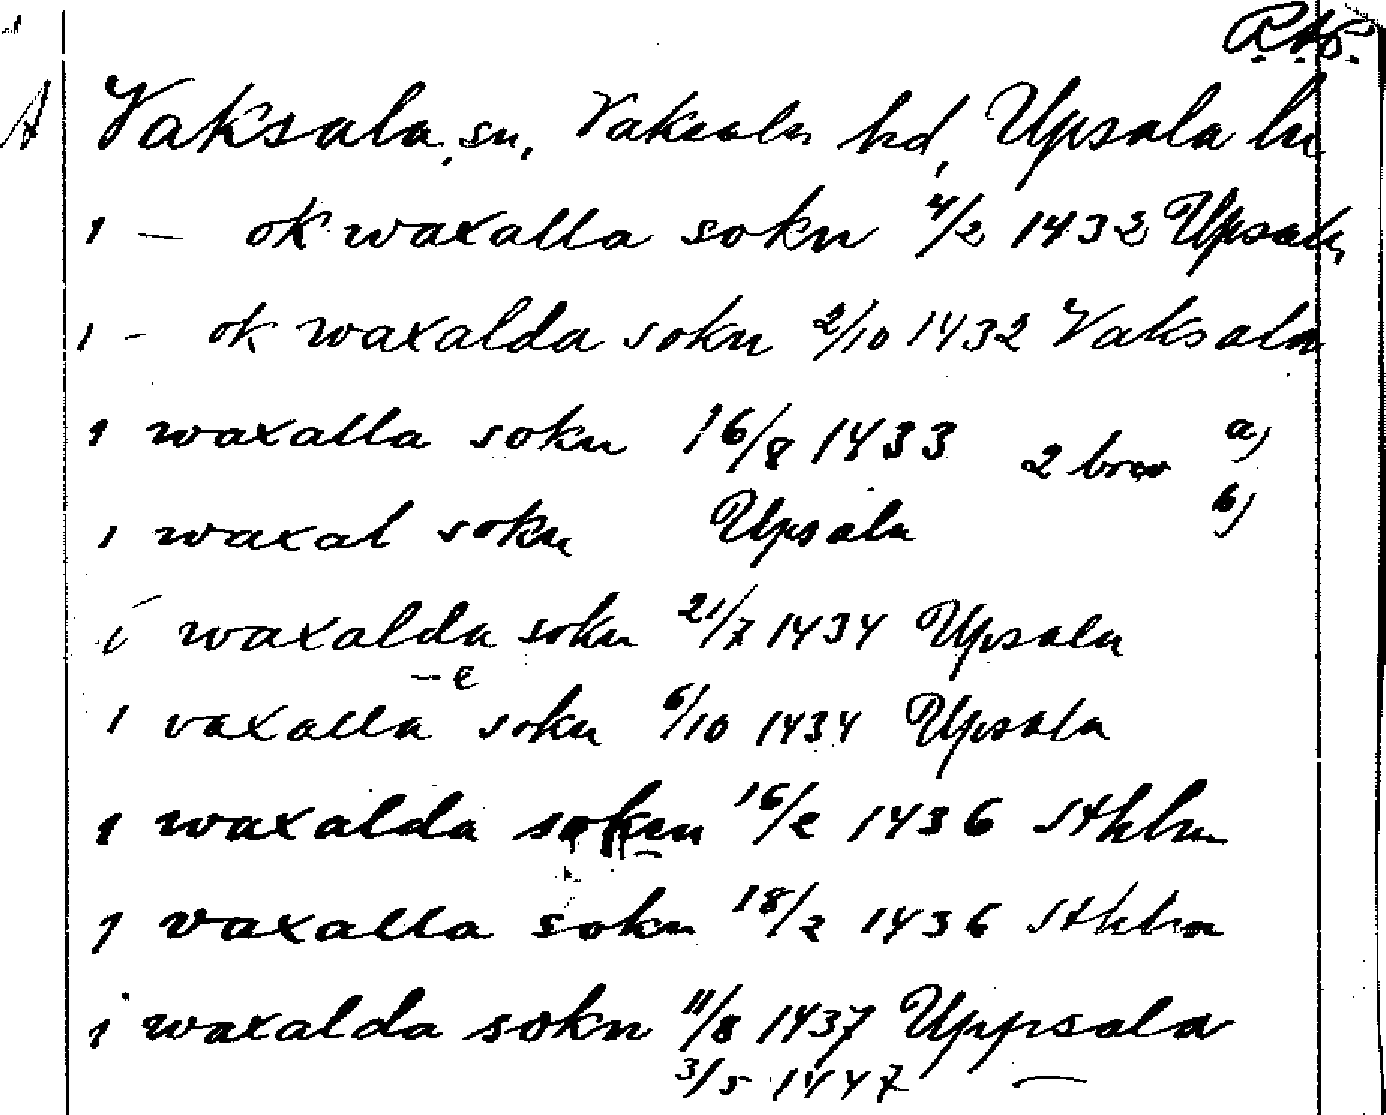 RAP.
A Vaksala sn, Vaksala hd, Upsala län
i – ok waxalla sokn 4/2 1432 Upsala
i – ok waxalda sokn 2/10 1432 Vaksala
i waxalla sokn 16/8 1433 2 brev a)
i waxal sokn Upsala b)
i waxalda sokn 21/7 1434 Upsala
– e
i vaxalla sokn 6/10 1434 Upsala
i waxalda soken 16/2 1436 Sthlm
j vaxalla sokn 18/2 1436 Sthlm
i waxalda sokn 11/8 1437 Uppsala
3/5 1447 —